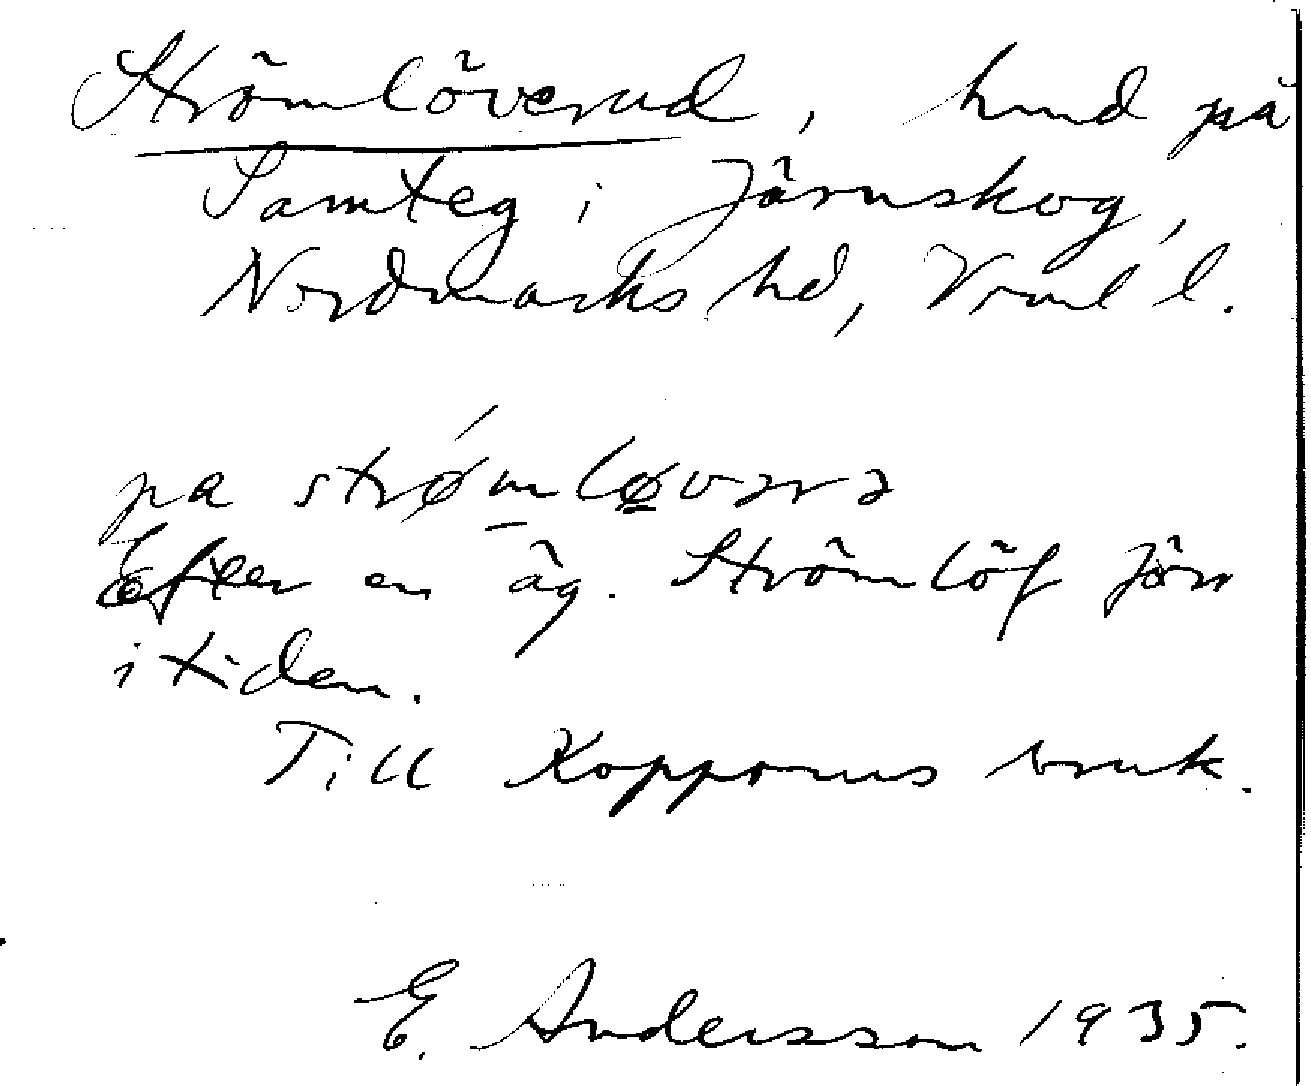 Strömlöverud, hmd på
Samteg i Järnskog,
Nordmarks hd, Vrml l.
pa strø´m løvərə
Efter en äg. Strömlöf förr
i tiden.
Till Kopporns bruk.
E. Andersson 1935.